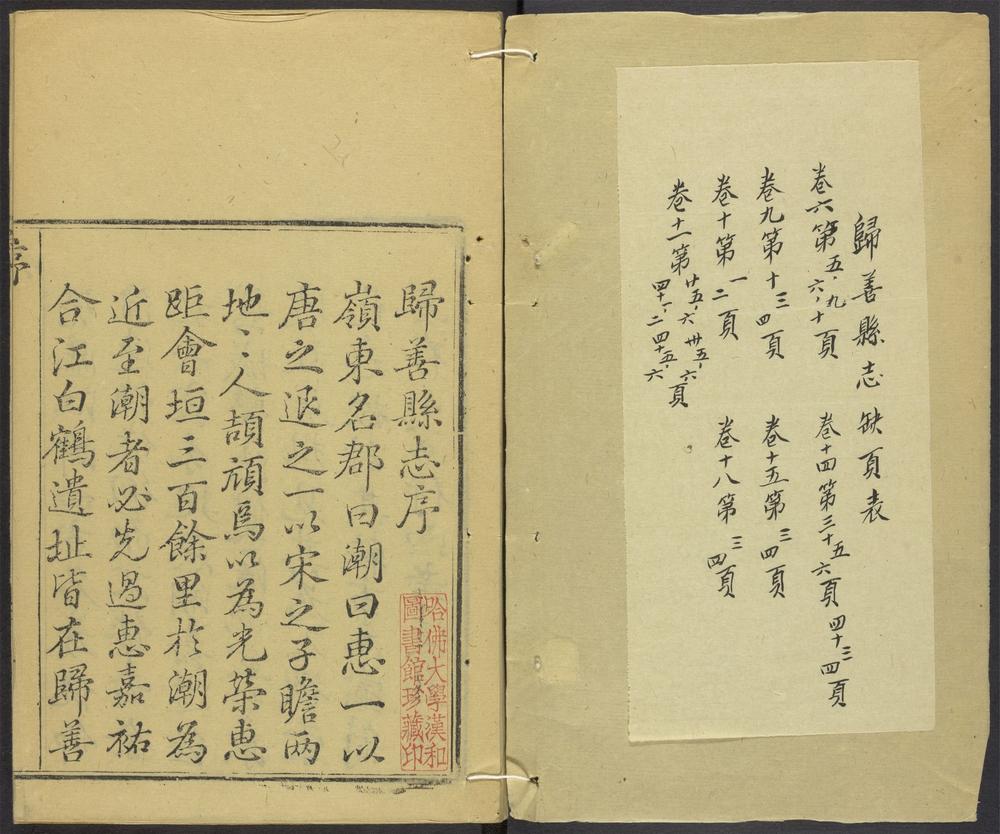 歸善縣志缺頁表
卷六第五,九六,十頁
卷十四第三十五六頁四十三四頁
卷九第十三四頁
卷十五第三四頁
卷十第一二頁
卷十八第三四頁
卷十一第廿五,六卅五,六四十一,二四十五,六頁
歸善縣志序
嶺東名郡曰潮曰惠一以
唐之退之一以宋之子瞻两
地〻人頡頏焉以為光榮惠
距會垣三百餘里於潮為
近至潮者必先過惠嘉祐
合江白鶴遺址皆在歸善
哈佛大學漢和
圖書館珍藏印
序